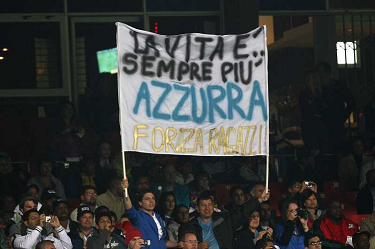 LA VITA E'..
SEMPRE PIU'
AZZURRA
FORZA RAGAZZI